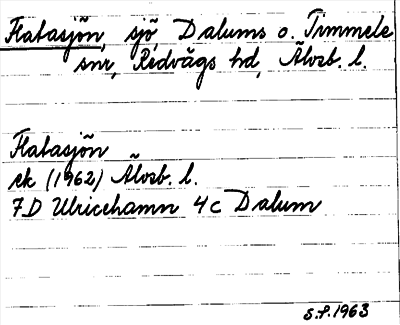 Flatasjön, sjö, Dalums o. Timmele
snr, Redvägs hd, Älvsb. l.
Flatasjön
ek (1962) Älvsb. l.
7D Ulricehamn 4c Dalum
S.F. 1963